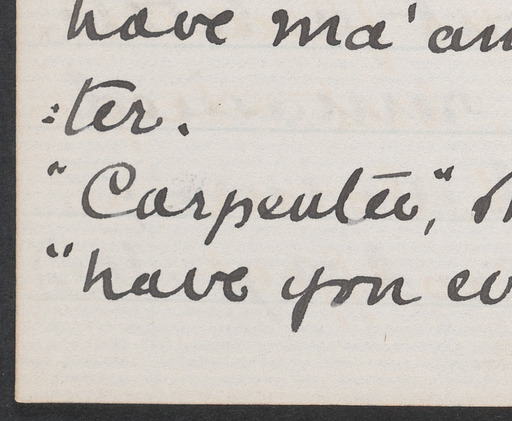 have ma'am
:ter.
"Carpenter",
"have you ev